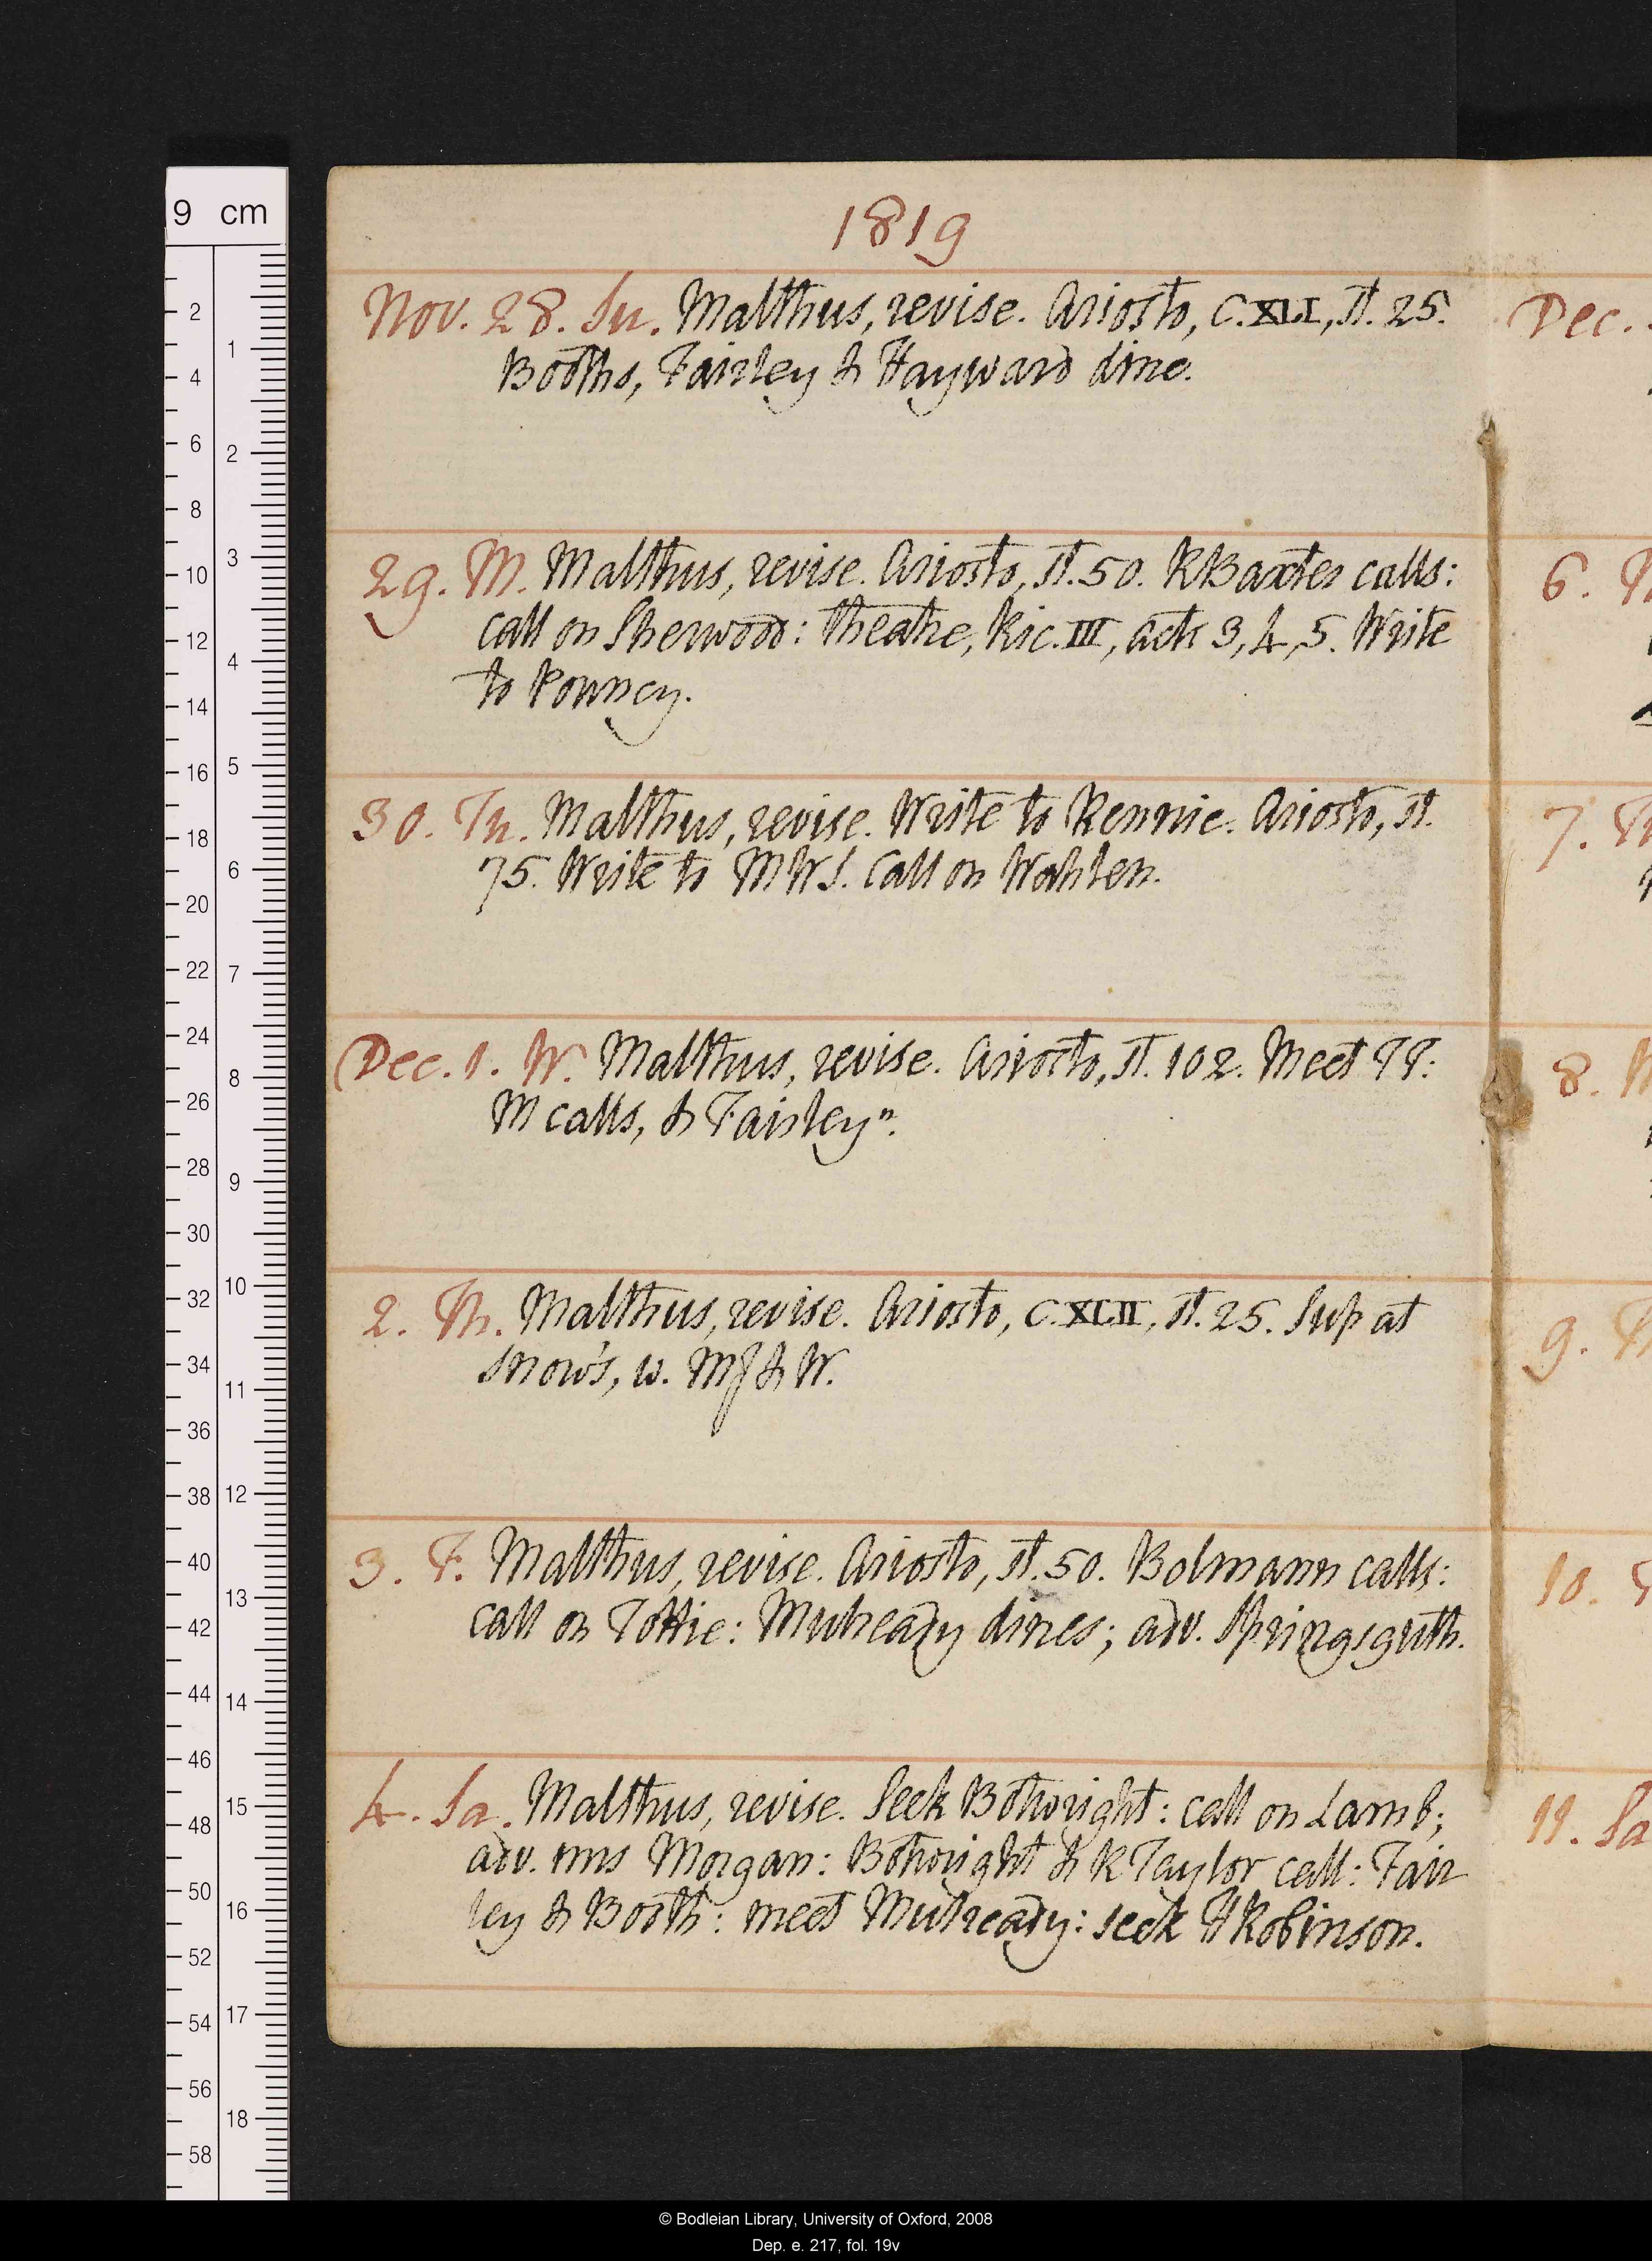 9 cm
1819
Nov. 28. Su. Malthus, revise. Ariosto, C.XLI, st. 25.
Booths, Fairley & Hayward dine.
29. M. Malthus, revise. Ariosto, st. 50. R Baxter calls:
call on Sherwood: theatre, Ric. III, acts 3, 4, 5. Write
to Pouncy.
30. Tu. Malthus, revise. Write to Rennie. Ariosto, st.
75. Write to MWS. Call on Wahlen.
Dec. 1. W. Malthus, revise. Ariosto, st. 102. Meet TT:
M calls, & Fairleyn.
2. Th. Malthus, revise. Ariosto, C. XLII, st. 25. Sup at
Snow's, w. MJ & W.
3. F. Malthus, revise. Ariosto, st. 50. Bolmann calls:
call on Tottie: Mulready dines; adv. Springsguth.
4. Sa. Malthus, revise. Seek Bothwright: call on Lamb;
adv. mrs Morgan: Bothwright & R Taylor call: Fair
ley & Booth: meet Mulready: seek H Robinson.
Dec.
6.
7.
8.
9.
10.
11. Sa
© Bodleian Library, University of Oxford, 2008
Dep. e. 217, fol. 19v